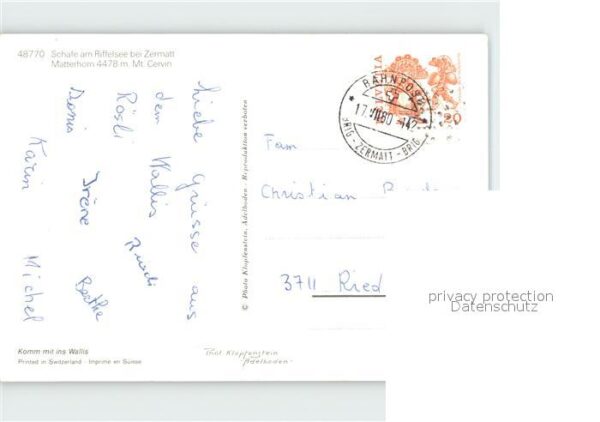 48770 Schafe am Riffelsee bei Zermatt
Matterhorn 4478 m. Mt. Cervin
Liebe Grüsse aus
dem Wallis
Rösli Ruedi
Irène Berthe
Karin Michel
© Photo Klopfenstein, Adelboden - Reproduktion verboten
HELVETIA
20
BAHNPOST
17.VII.80
BRIG-ZERMATT-BRIG
Fam
Christian
3711 Ried
privacy protection
Datenschutz
Komm mit ins Wallis
Printed in Switzerland - Imprimé en Suisse
Phot Klopfenstein
Adelboden